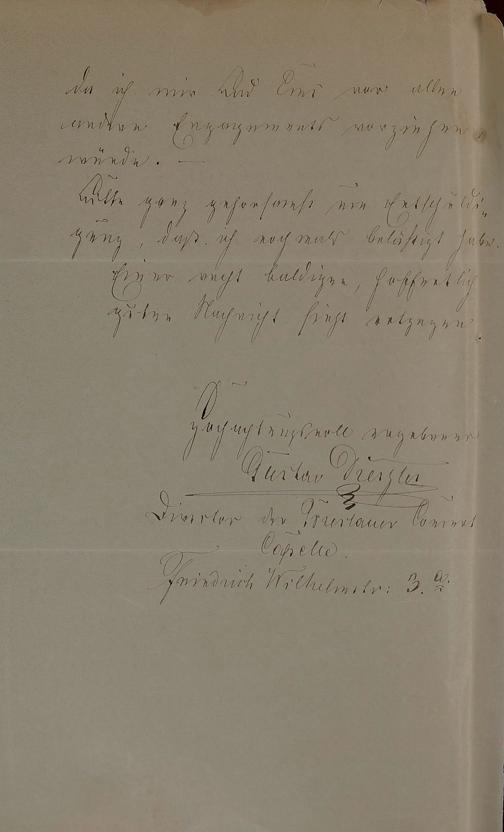 da ich mir Bad Ems vor allen
andern Engagements vorziehen
würde. —
Bitte ganz gehorsamst um Entschuldi-
gung, daß ich nochmals belästigt habe.
Einer recht baldigen, hoffentlich
guten Nachricht sieht entgegen
Hochachtungsvoll ergebener
Gustav
Director der Breslauer Concert
Capelle.
Friedrich Wilhelmstr: 3.a.